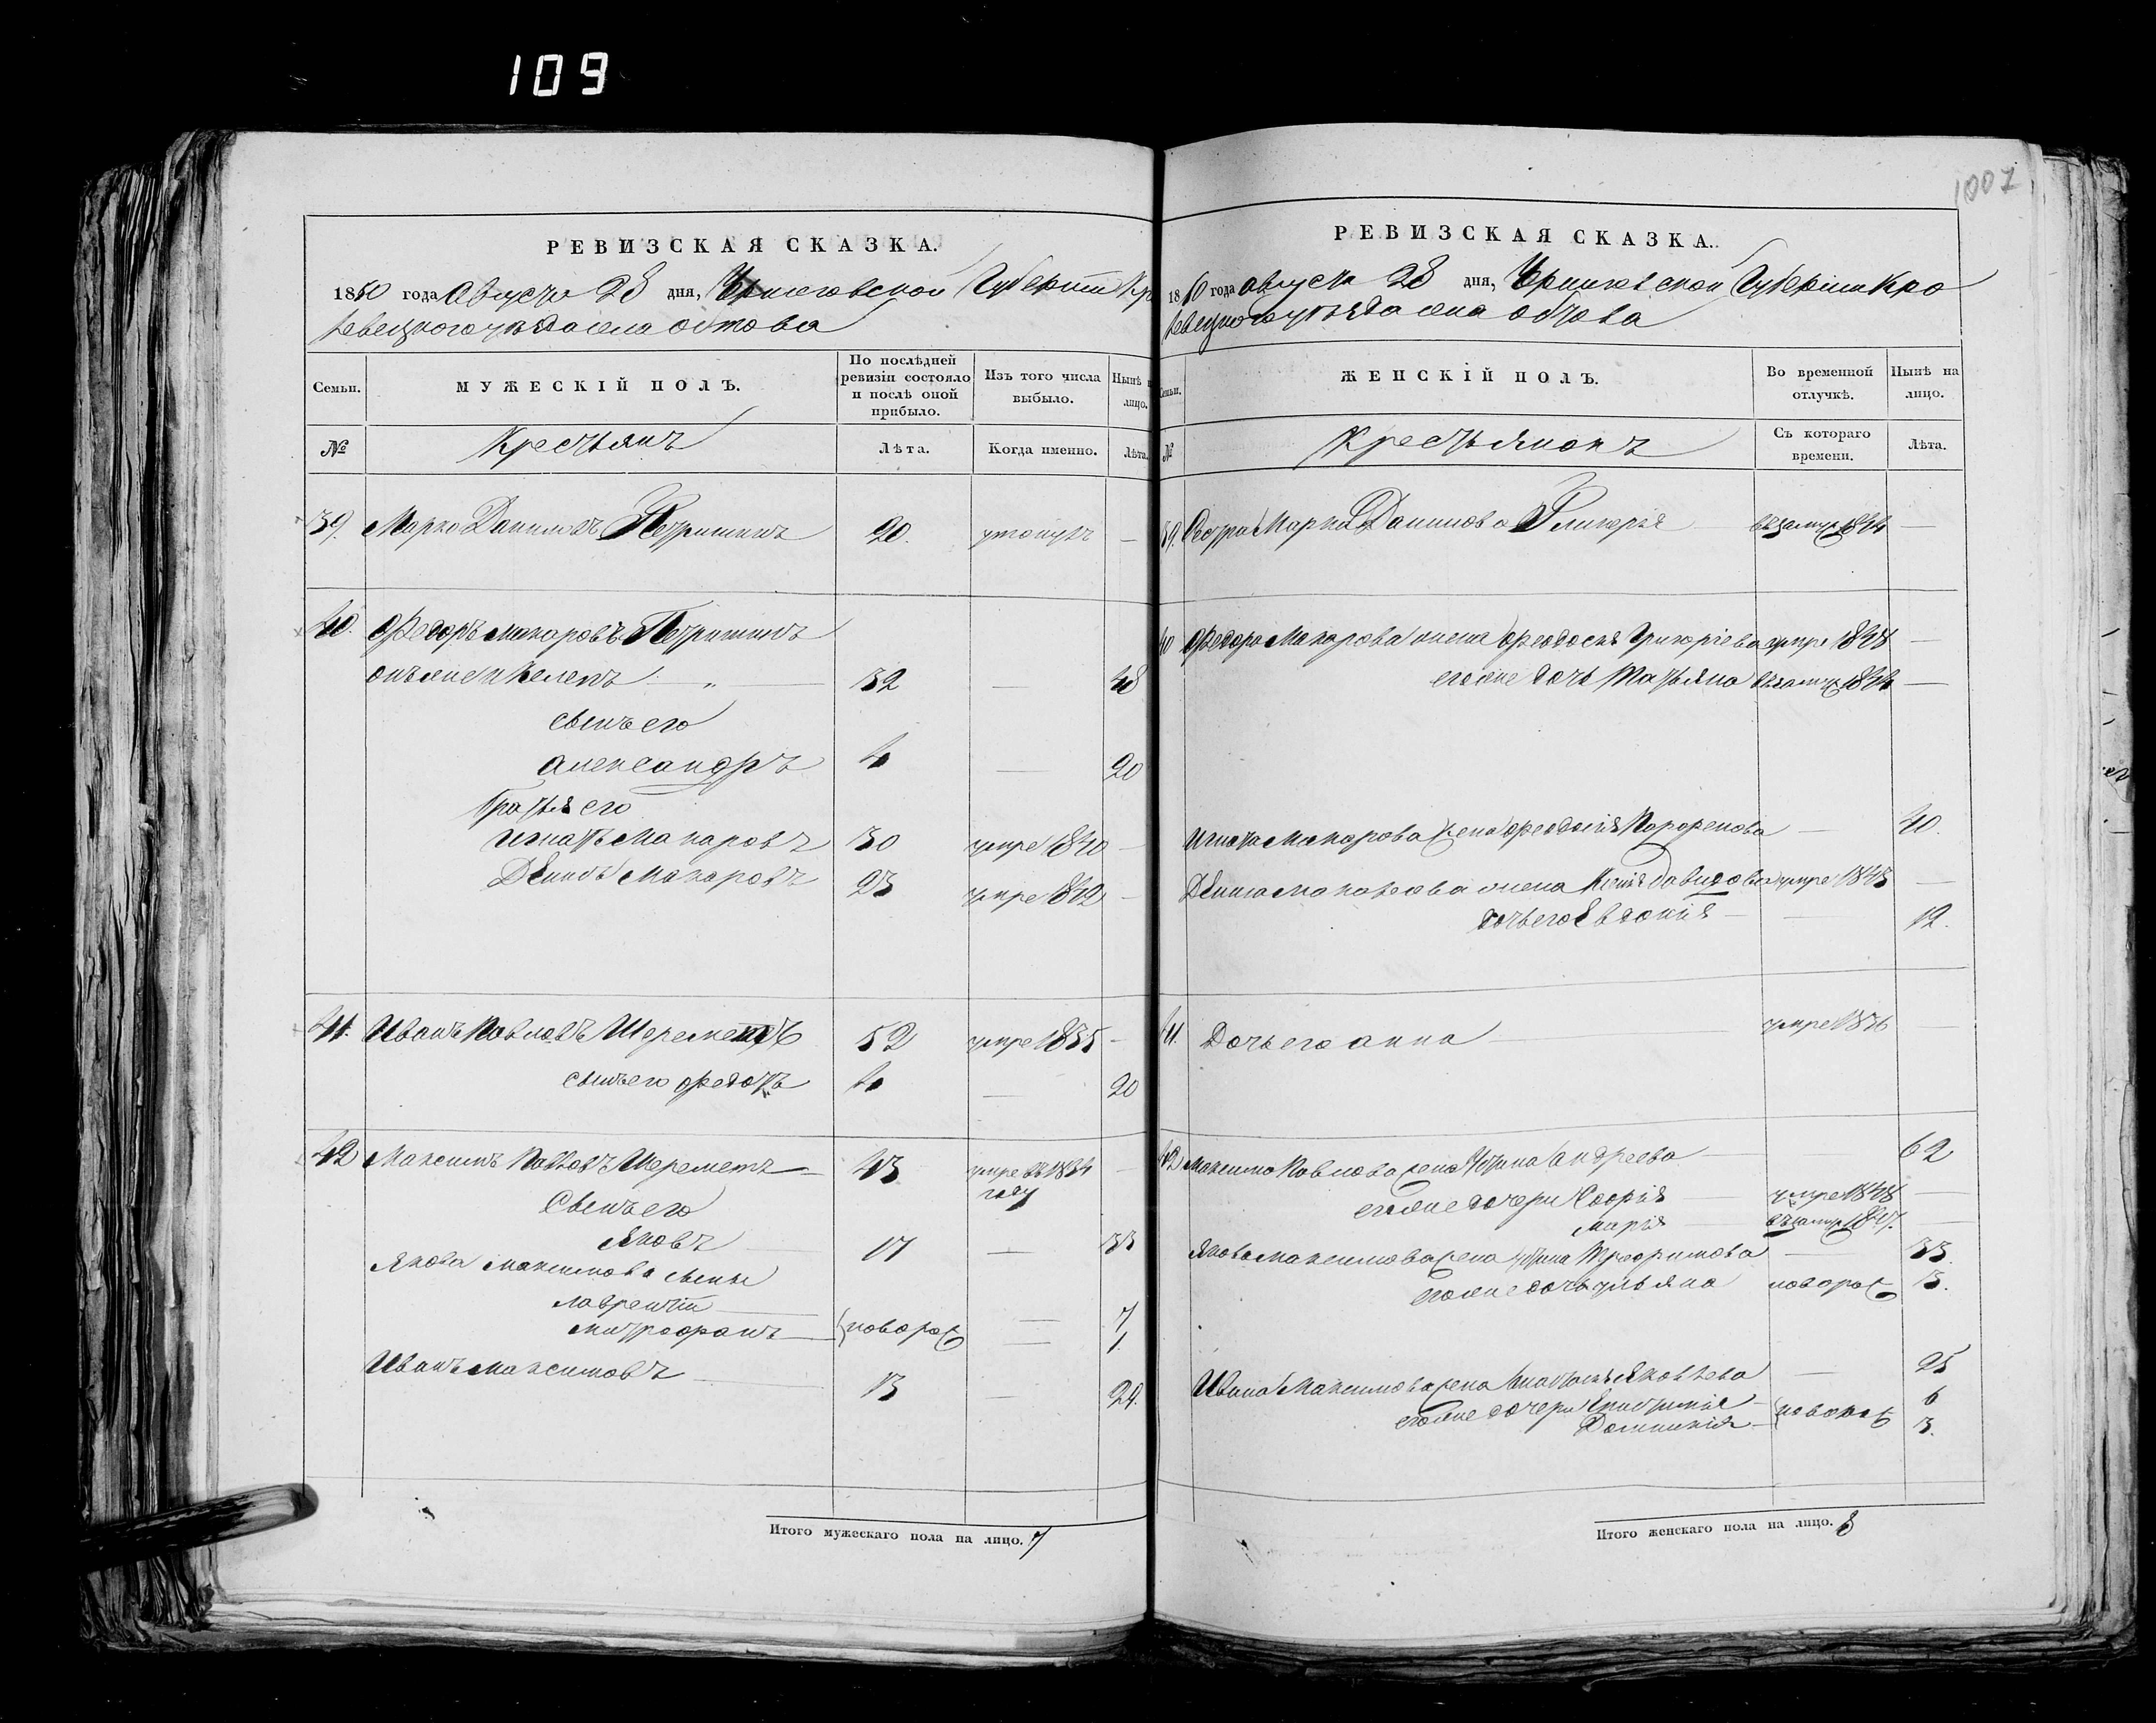 109
1007
РЕВИЗСКАЯ СКАЗКА.
1850 года Августа 28 дня, Черниговской Губерніи Кро
левецкого уѣзда села Обтова
Семьи.
МУЖЕСКІЙ ПОЛЪ.
По послѣдней ревизіи состояло и послѣ оной прибыло.
Изъ того числа выбыло.
Нынѣ на лицо.
№
Крестьянъ
Лѣта.
Когда именно.
Лѣта.
39. Марко Даниловъ 20.
40. Федоръ Макаровъ
онъ же 32 — 48
сынъ его
Александръ 4 — 20
Братья его
Игнатъ Макаровъ 30 умре 1840 —
Макаровъ 23 умре 1842 —
41. Иванъ Павловъ Шереметъ 52 умре 1835 —
сынъ его Федоръ 4 — 20
42 Максимъ Павловъ Шереметъ 43 умре въ 1834 году —
Сынъ его
Яковъ 17 — 33
Якова Максимова сыны
Лаврентій — 7
Митрофанъ новорож — 1
Иванъ Максимовъ 13 — 29.
Итого мужескаго пола на лицо. 7
РЕВИЗСКАЯ СКАЗКА.
1850 года Августа 28 дня, Черниговской Губерніи Кро
левецкого уѣзда села Обтова
Семьи.
ЖЕНСКІЙ ПОЛЪ.
Во временной отлучкѣ.
Нынѣ на лицо.
№
Крестьянокъ
Съ котораго времени.
Лѣта.
39. Сестра Марка Данилова Гликерія —
40 Федора Макарова жена Феодосія Григоріева умре 1848 —
его же дочь Татьяна —
Игната Макарова жена Феодосія — 40.
Макарова жена Давидова умре 1843 —
дочь его Евдокія — 12.
41. Дочь его Анна умре 1836
42 Максима Павлова жена Ирина Андреева — 62
его же дочери Софія умре 1848 —
Марія —
Якова Максимова жена Ирина Трофимова — 33.
его же дочь Ульяна новорож 3.
Ивана Максимова жена Яковлева — 25
его же дочери 6
Домникія новорож 3.
Итого женскаго пола на лицо. 8